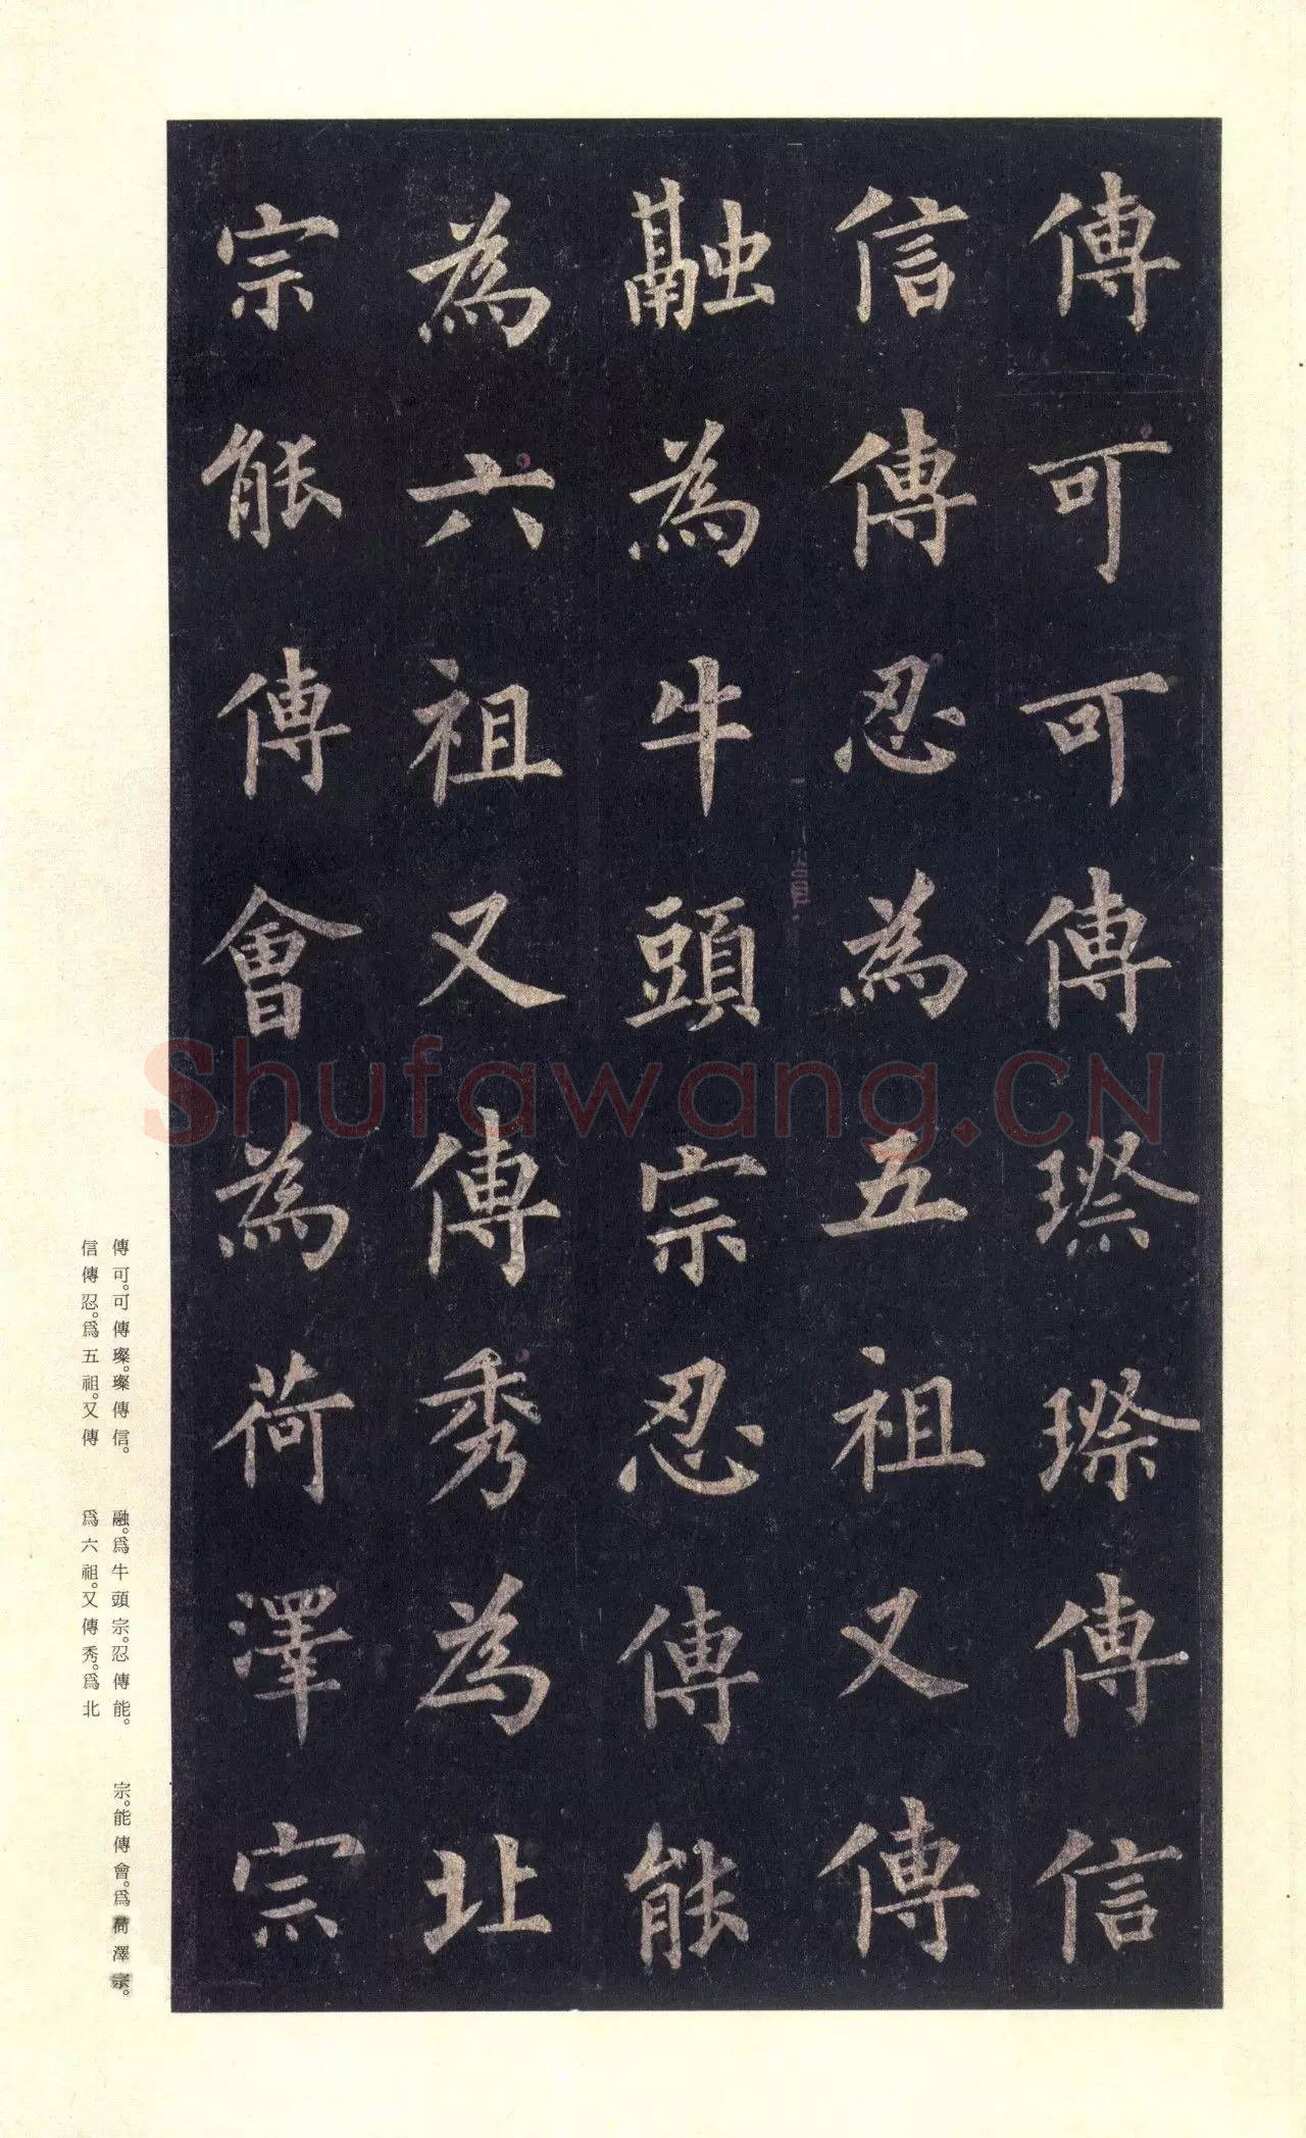 傳可可傳璨璨傳信
信傳忍為五祖又傳
融為牛頭宗忍傳能
為六祖又傳秀為北
宗能傳會為荷澤宗
傳可。可傳璨。璨傳信。
信傳忍。爲五祖。又傳
融。爲牛頭宗。忍傳能。
爲六祖。又傳秀。爲北
宗。能傳會。爲荷澤宗。
Shufawang.CN